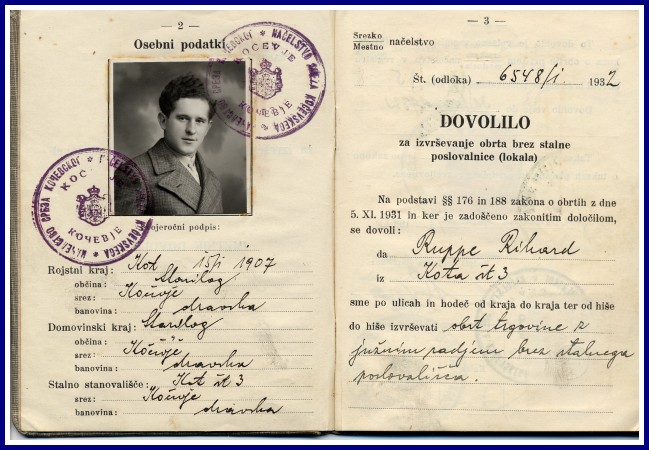 — 2 —
Osebni podatki
KOČEVJE
КОЧЕВЈЕ
NAČELSTVO SREZA KOČEVSKEGA
КОЧЕВЈЕ
NAČELSTVO SREZA KOČEVSKEGA
podpis:
Rojstni kraj: Kot 15/i 1907
občina: Starilog
srez: Kočevje
banovina: dravska
Domovinski kraj: Starilog
občina:
srez: Kočevje
banovina: dravska
Stalno stanovališče: Kot št 3
srez: Kočevje
banovina: dravska
— 3 —
Srezko
Mestno načelstvo
Št. (odloka) 6548/i 1932
DOVOLILO
za izvrševanje obrta brez stalne
poslovalnice (lokala)
Na podstavi §§ 176 in 188 zakona o obrtih z dne
5. XI. 1931 in ker je zadoščeno zakonitim določilom,
se dovoli:
da Ruppe Rihard
iz Kota št 3
sme po ulicah in hodeč od kraja do kraja ter od hiše
do hiše izvrševati obrt trgovine z
južnim sadjem brez stalnega
poslovališča.